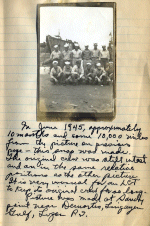 In June 1945, approximately
10 months and some 10,000 miles
from the picture on previous
page - this snap was made.
The original crew was still intact
and are in the same relative
positions as the other picture
It is very unusual for an LCT
to keep its original crew so long.
Picture was made at Sandy
point near Damortis, Lingayen
Gulf, Luzon P.I.